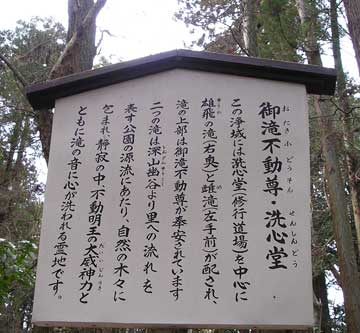 御滝不動尊・洗心堂
おたきふどうそん
せんしんどう
この浄域には洗心堂(修行道場)を中心に
雄飛の滝(右奥)と雌滝(左手前)が配され、
滝の上部は御滝不動尊が奉安されています
二つの滝は深山幽谷より里への流れを
表す公園の源流にあたり、自然の木々に
包まれ、静寂の中、不動明王の大威神力と
ともに滝の音に心が洗われる霊地です。